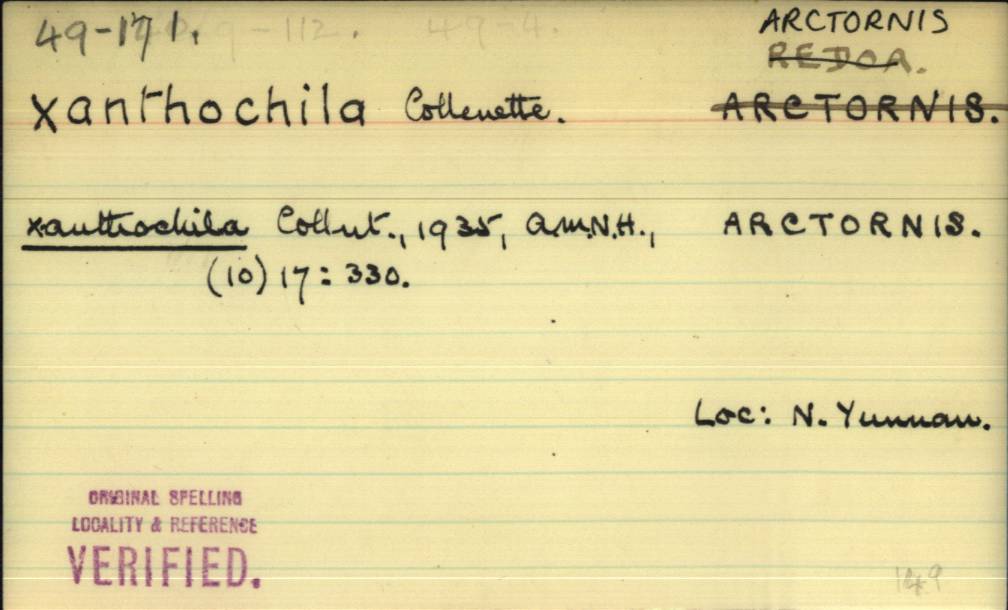 49-171. 49-112. 47-4.
ARCTORNIS
REDOA.
xanthochila Collenette. ARCTORNIS.
xanthochila Collnt., 1935, A.M.N.H., ARCTORNIS.
(10) 17: 330.
Loc: N. Yunnan.
ORIGINAL SPELLING
LOCALITY & REFERENCE
VERIFIED.
149